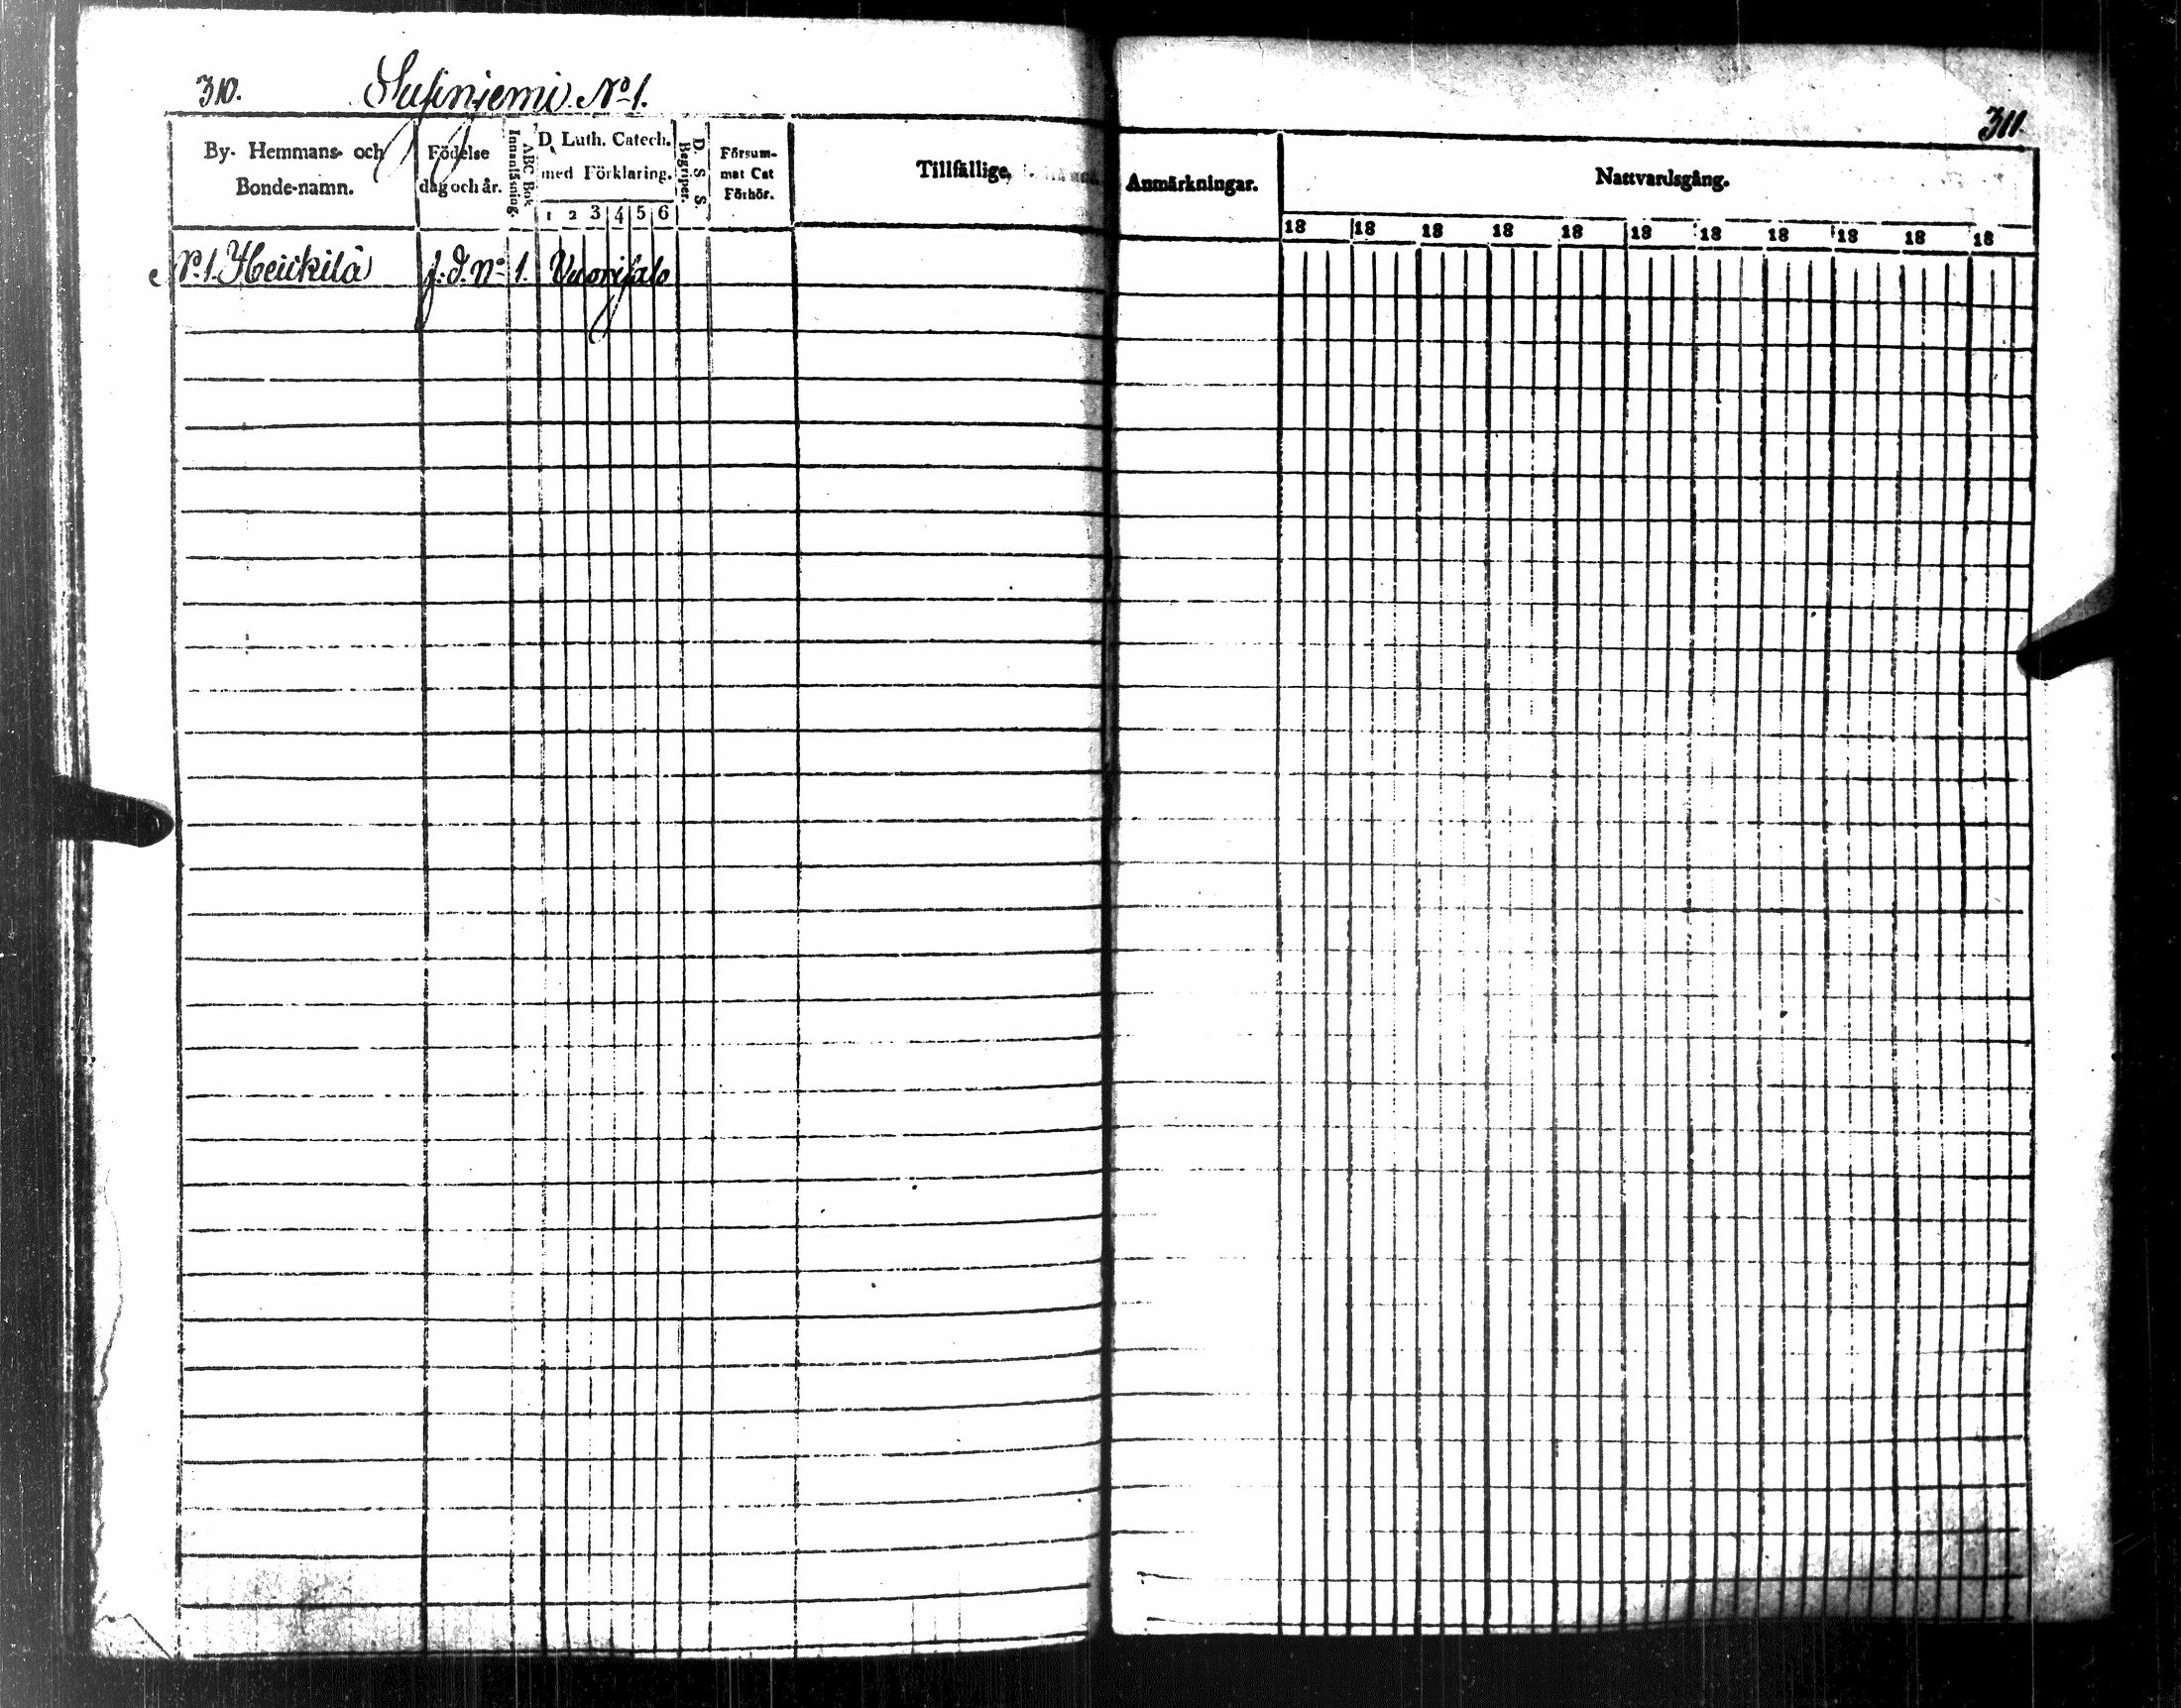 310.
Susinjemi No 1.
By- Hemmans- och
Bonde-namn.
Födelse
dag och år.
Innanläsning.
ABC Bok
D. Luth. Catech.
med Förklaring.
1 2 3 4 5 6
Begriper.
D. S. S.
Försum-
mat Cat
Förhör.
Tillfällige,
No 1. Heickilä f. d. No 1. Vuorisalo
311.
Anmärkningar.
Nattvardsgång.
18 18 18 18 18 18 18 18 18 18 18